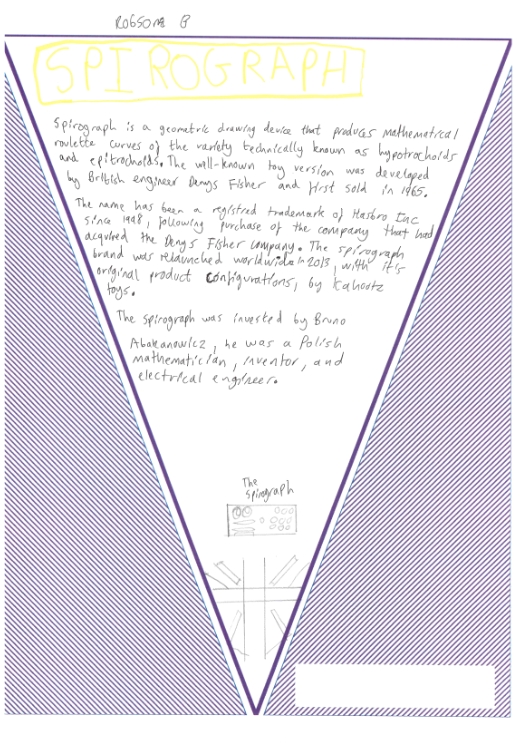 Robson B
SPIROGRAPH
Spirograph is a geometric drawing device that produces mathematical
roulette curves of the variety technically known as hypotrochoids
and epitrochoids. The well-known toy version was developed
by British engineer Denys Fisher and first sold in 1965.
The name has been a registred trademark of Hasbro Inc
since 1998, following purchase of the company that had
acquired the Denys Fisher company. The spirograph
brand was relaunched worldwide in 2013, with it's
original product configurations, by Kahootz
toys.
The spirograph was invested by Bruno
Abakanowicz, he was a Polish
mathematician, inventor, and
electrical engineer.
The
spirograph